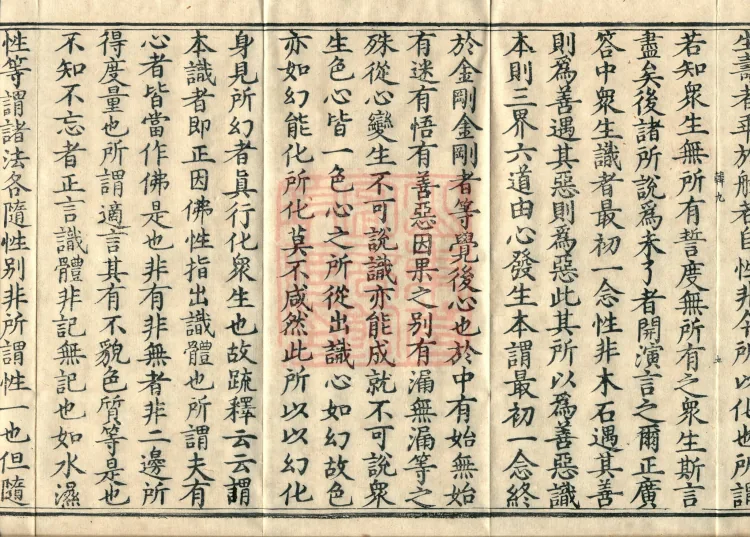 若知眾生無所有誓度無所有之眾生斯言
盡矣後諸所說為未了者開演言之爾正廣
答中眾生識者最初一念性非木石遇其善
則為善遇其惡則為惡此其所以為善惡識
本則三界六道由心發生本謂最初一念終
於金剛金剛者等覺後心也於中有始無始
有迷有悟有善惡因果之別有漏無漏等之
殊從心變生不可說識亦能成就不可說眾
生色心皆一色心之所從出識心如幻故色
亦如幻能化所化莫不咸然此所以以幻化
身見所幻者真行化眾生也故疏釋云云謂
本識者即正因佛性指出識體也所謂夫有
心者皆當作佛是也非有非無者非二邊所
得度量也所謂適言其有不貌色質等是也
不知不忘者正言識體非記無記也如水濕
性等謂諸法各隨性別非所謂性一也但隨